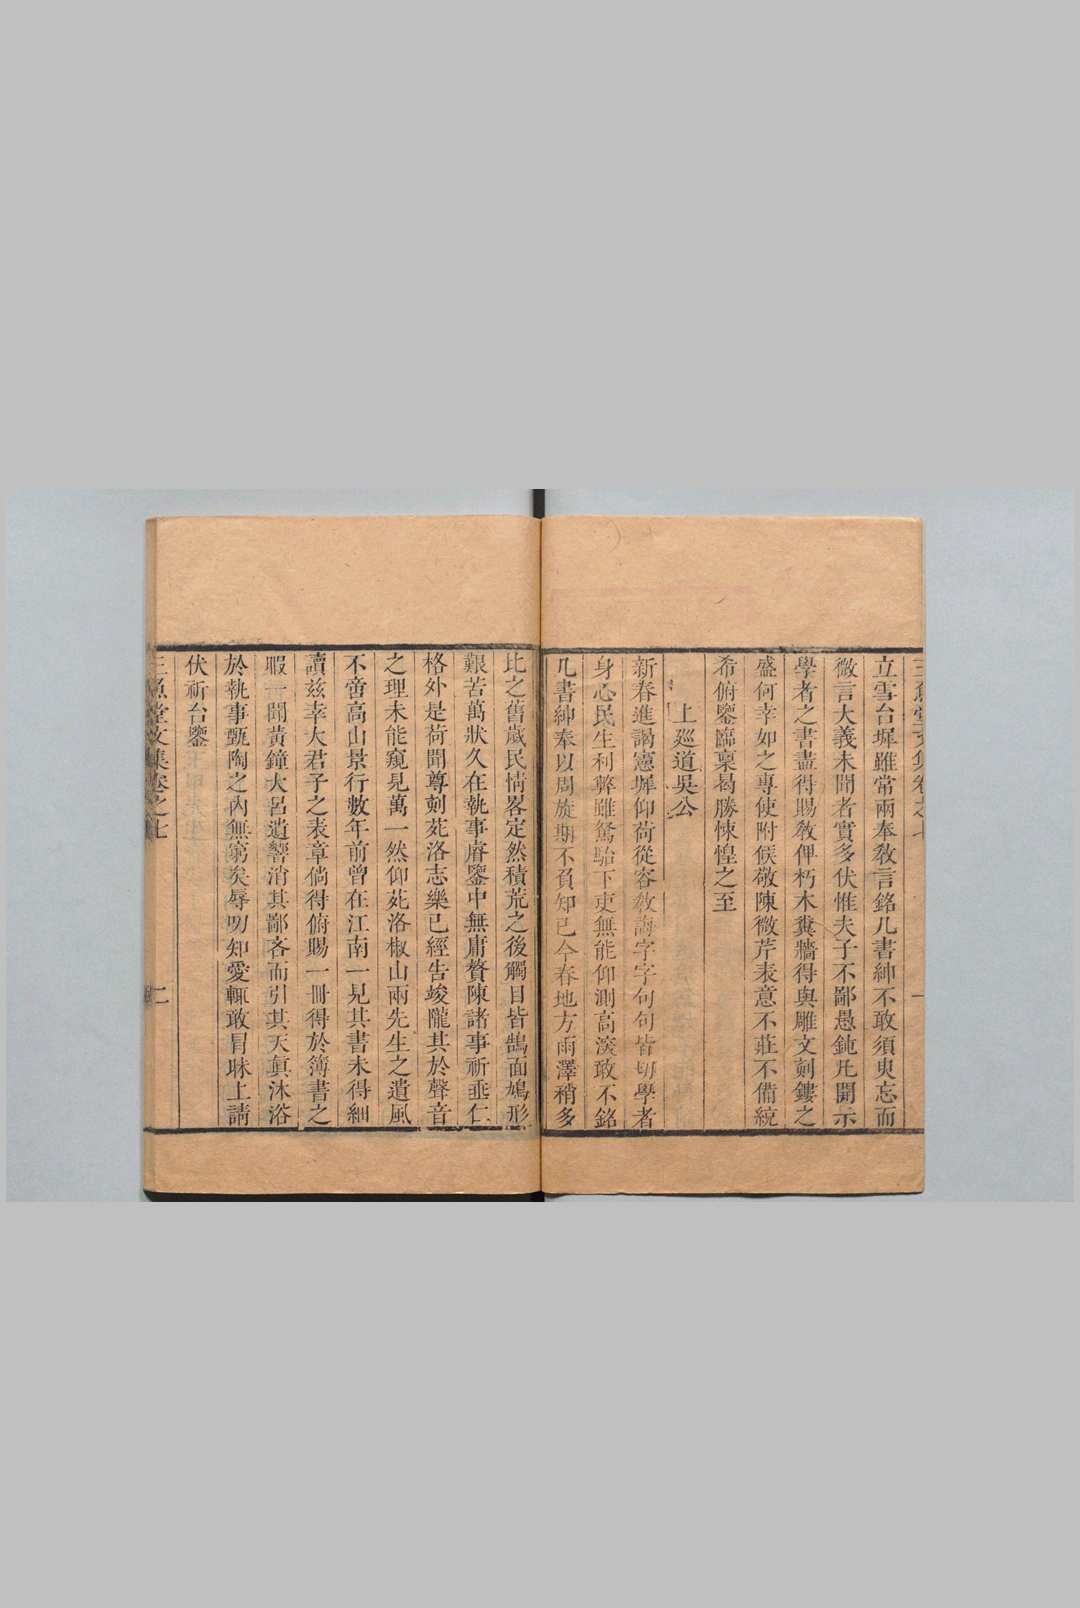 三魚堂文集卷之七 一
立雪台墀雖常兩奉敎言銘几書紳不敢須臾忘而
微言大義未聞者實多伏惟夫子不鄙愚鈍凡開示
學者之書盡得賜敎俾朽木糞牆得與雕文刻鏤之
盛何幸如之專使附候敬陳微芹表意不莊不備統
希俯鑒臨稟曷勝悚惶之至
上廵道吳公
新春進謁憲墀仰荷從容敎誨字字句句皆切學者
身心民生利弊雖駑駘下吏無能仰測高深敢不銘
几書紳奉以周旋期不負知已今春地方雨澤稍多
比之舊歲民情畧定然積荒之後觸目皆鵠面鳩形
艱苦萬狀久在執事睿鑒中無庸贅陳諸事祈垂仁
格外是荷聞尊刻茺洛志樂已經告竣隴其於聲音
之理未能窺見萬一然仰茺洛椒山兩先生之遺風
不啻高山景行數年前曾在江南一見其書未得細
讀兹幸大君子之表章倘得俯賜一冊得於簿書之
暇一聞黃鐘大呂遺響消其鄙吝而引其天眞沐浴
於執事甄陶之內無窮矣辱叨知愛輒敢冒昧上請
伏祈台鑒
三魚堂文集卷之七 二